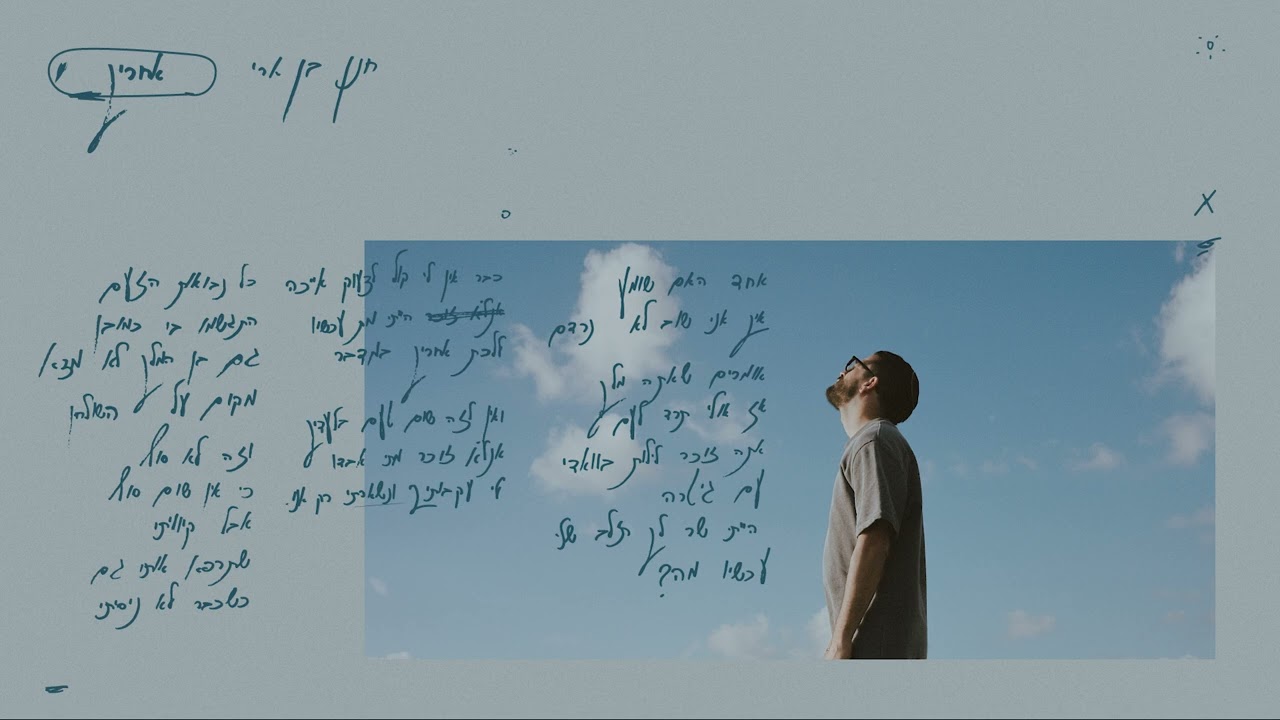 חנן בן ארי
אחריך
אחד האם שומע
איך אני שוב לא נרדם
אומרים שאתה מלך
אז אולי תרד לעם
אתה זוכר לילות בוואדי
עם גיטרה
הייתי שר לך שלי
עכשיו מה?
כבר אין לי קול לצעוק אייכה
הייתי מת עכשיו
ללכת אחריך במדבר
ואין לזה שום טעם בלעדיך
אני לא זוכר מתי אבדו
לי עקבותיך ונשארתי רק אני.
כל נבואות הזעם
התגשמו בי כמובן
גם בן המלך לא מצא
מקום על השולחן
וזה לא סוף
כי אין שום סוף
אבל קיוויתי
שתרפא אותי גם
כשכבר לא ניסיתי